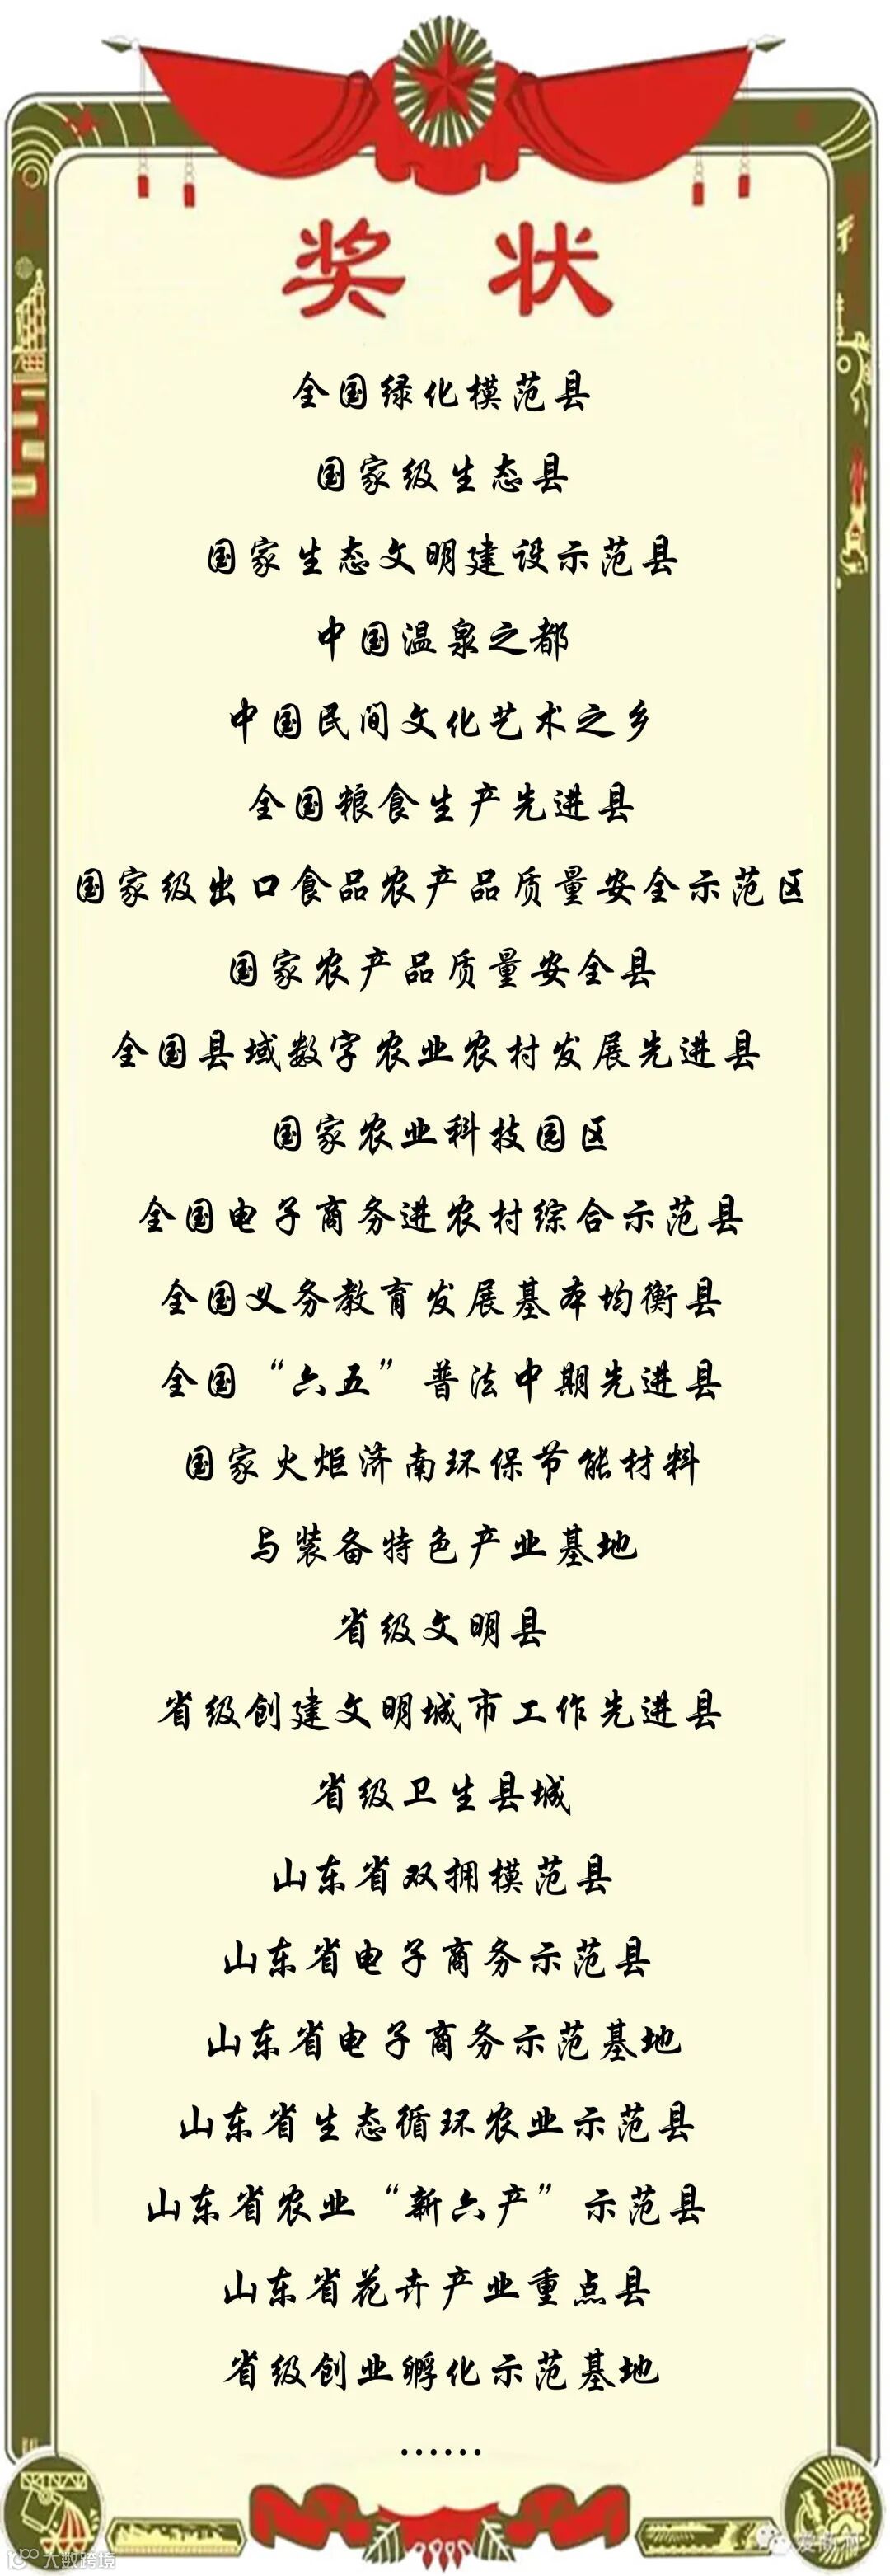 奖 状
全国绿化模范县
国家级生态县
国家生态文明建设示范县
中国温泉之都
中国民间文化艺术之乡
全国粮食生产先进县
国家级出口食品农产品质量安全示范区
国家农产品质量安全县
全国县域数字农业农村发展先进县
国家农业科技园区
全国电子商务进农村综合示范县
全国义务教育发展基本均衡县
全国“六五”普法中期先进县
国家火炬济南环保节能材料
与装备特色产业基地
省级文明县
省级创建文明城市工作先进县
省级卫生县城
山东省双拥模范县
山东省电子商务示范县
山东省电子商务示范基地
山东省生态循环农业示范县
山东省农业“新六产”示范县
山东省花卉产业重点县
省级创业孵化示范基地
……
爱商河
大数跨境